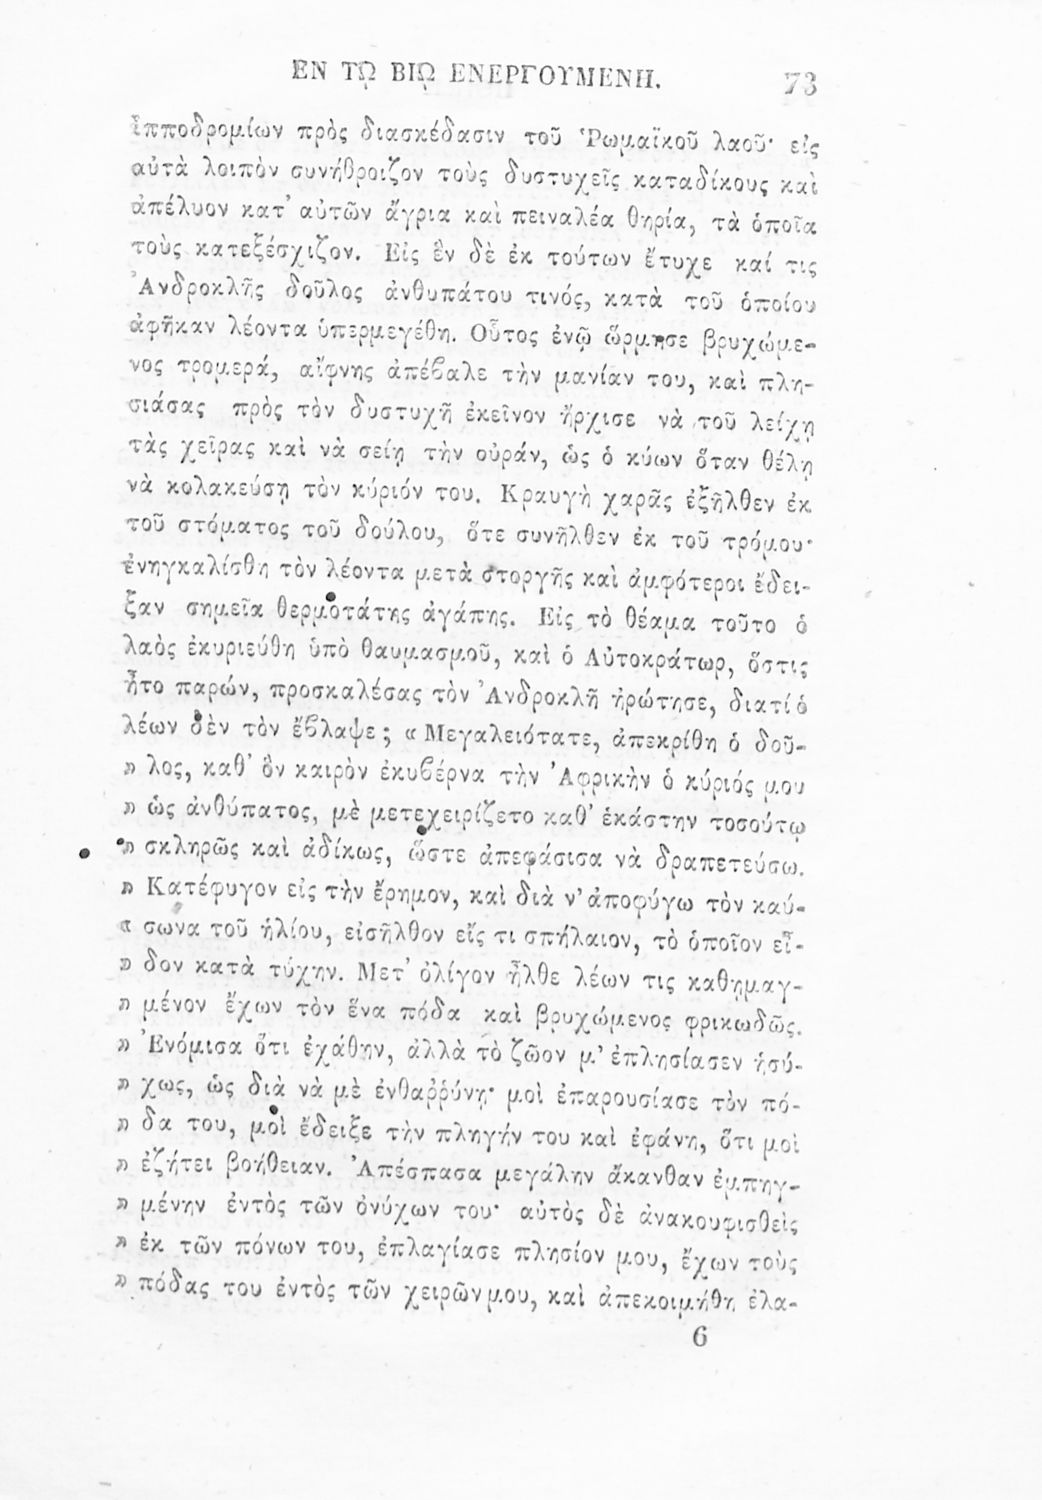 ΕΝ ΤΩ ΒΙΩ ΕΝΕΡΓΟΥΜΕΝΗ. 73
ἱπποδρομίων πρὸς διασκέδασιν τοῦ Ῥωμαϊκοῦ λαοῦ· εἰς
αὐτὰ λοιπὸν συνήθροιζον τοὺς δυστυχεῖς καταδίκους καὶ
ἀπέλυον κατ’ αὐτῶν ἄγρια καὶ πειναλέα θηρία, τὰ ὁποῖα
τοὺς κατεξέσχιζον. Εἰς ἓν δὲ ἐκ τούτων ἔτυχε καί τις
Ἀνδροκλῆς δοῦλος ἀνθυπάτου τινός, κατὰ τοῦ ὁποίου
ἀφῆκαν λέοντα ὑπερμεγέθη. Οὗτος ἐνῷ ὥρμησε βρυχώμε-
νος τρομερά, αἴφνης ἀπέβαλε τὴν μανίαν του, καὶ πλη-
σιάσας πρὸς τὸν δυστυχῆ ἐκεῖνον ἤρχισε νὰ τοῦ λείχῃ
τὰς χεῖρας καὶ νὰ σείῃ τὴν οὐράν, ὡς ὁ κύων ὅταν θέλῃ
νὰ κολακεύσῃ τὸν κύριόν του. Κραυγὴ χαρᾶς ἐξῆλθεν ἐκ
τοῦ στόματος τοῦ δούλου, ὅτε συνῆλθεν ἐκ τοῦ τρόμου·
ἐνηγκαλίσθη τὸν λέοντα μετὰ στοργῆς καὶ ἀμφότεροι ἔδει-
ξαν σημεῖα θερμοτάτης ἀγάπης. Εἰς τὸ θέαμα τοῦτο ὁ
λαὸς ἐκυριεύθη ὑπὸ θαυμασμοῦ, καὶ ὁ Αὐτοκράτωρ, ὅστις
ἦτο παρών, προσκαλέσας τὸν Ἀνδροκλῆ ἠρώτησε, διατί ὁ
λέων δὲν τὸν ἔβλαψε; « Μεγαλειότατε, ἀπεκρίθη ὁ δοῦ-
» λος, καθ’ ὃν καιρὸν ἐκυβέρνα τὴν Ἀφρικὴν ὁ κύριός μου
» ὡς ἀνθύπατος, μὲ μετεχειρίζετο καθ’ ἑκάστην τοσούτῳ
» σκληρῶς καὶ ἀδίκως, ὥστε ἀπεφάσισα νὰ δραπετεύσω.
» Κατέφυγον εἰς τὴν ἔρημον, καὶ διὰ ν’ ἀποφύγω τὸν καύ-
« σωνα τοῦ ἡλίου, εἰσῆλθον εἴς τι σπήλαιον, τὸ ὁποῖον εἶ-
» δον κατὰ τύχην. Μετ’ ὀλίγον ἦλθε λέων τις καθημαγ-
» μένον ἔχων τὸν ἕνα πόδα καὶ βρυχώμενος φρικωδῶς.
» Ἐνόμισα ὅτι ἐχάθην, ἀλλὰ τὸ ζῶον μ’ ἐπλησίασεν ἡσύ-
» χως, ὡς διὰ νὰ μὲ ἐνθαῤῥύνῃ· μοὶ ἐπαρουσίασε τὸν πό-
» δα του, μοὶ ἔδειξε τὴν πληγήν του καὶ ἐφάνη, ὅτι μοὶ
» ἐζήτει βοήθειαν. Ἀπέσπασα μεγάλην ἄκανθαν ἐμπηγ-
» μένην ἐντὸς τῶν ὀνύχων του· αὐτὸς δὲ ἀνακουφισθεὶς
» ἐκ τῶν πόνων του, ἐπλαγίασε πλησίον μου, ἔχων τοὺς
» πόδας του ἐντὸς τῶν χειρῶν μου, καὶ ἀπεκοιμήθη ἐλα-
6